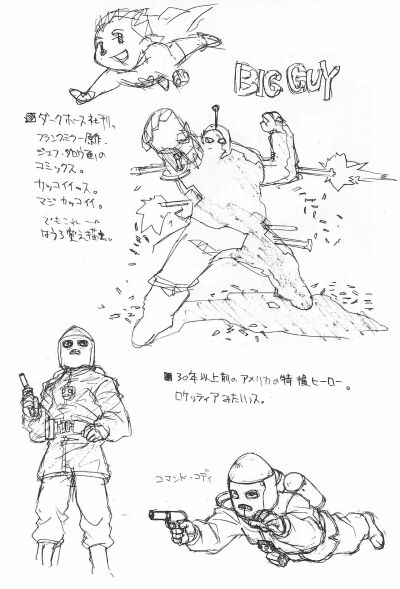 BIG GUY
■ダークホース社刊。
フランクミラー原作.
ジェフ・ダロウ画の
コミックス。
カッコイイッス。
マジカッコイイ。
でもこれ〜
うろ覚え
■30年以上前のアメリカの特撮ヒーロー。
ロケッティアみたいッス。
コマンド・コディ